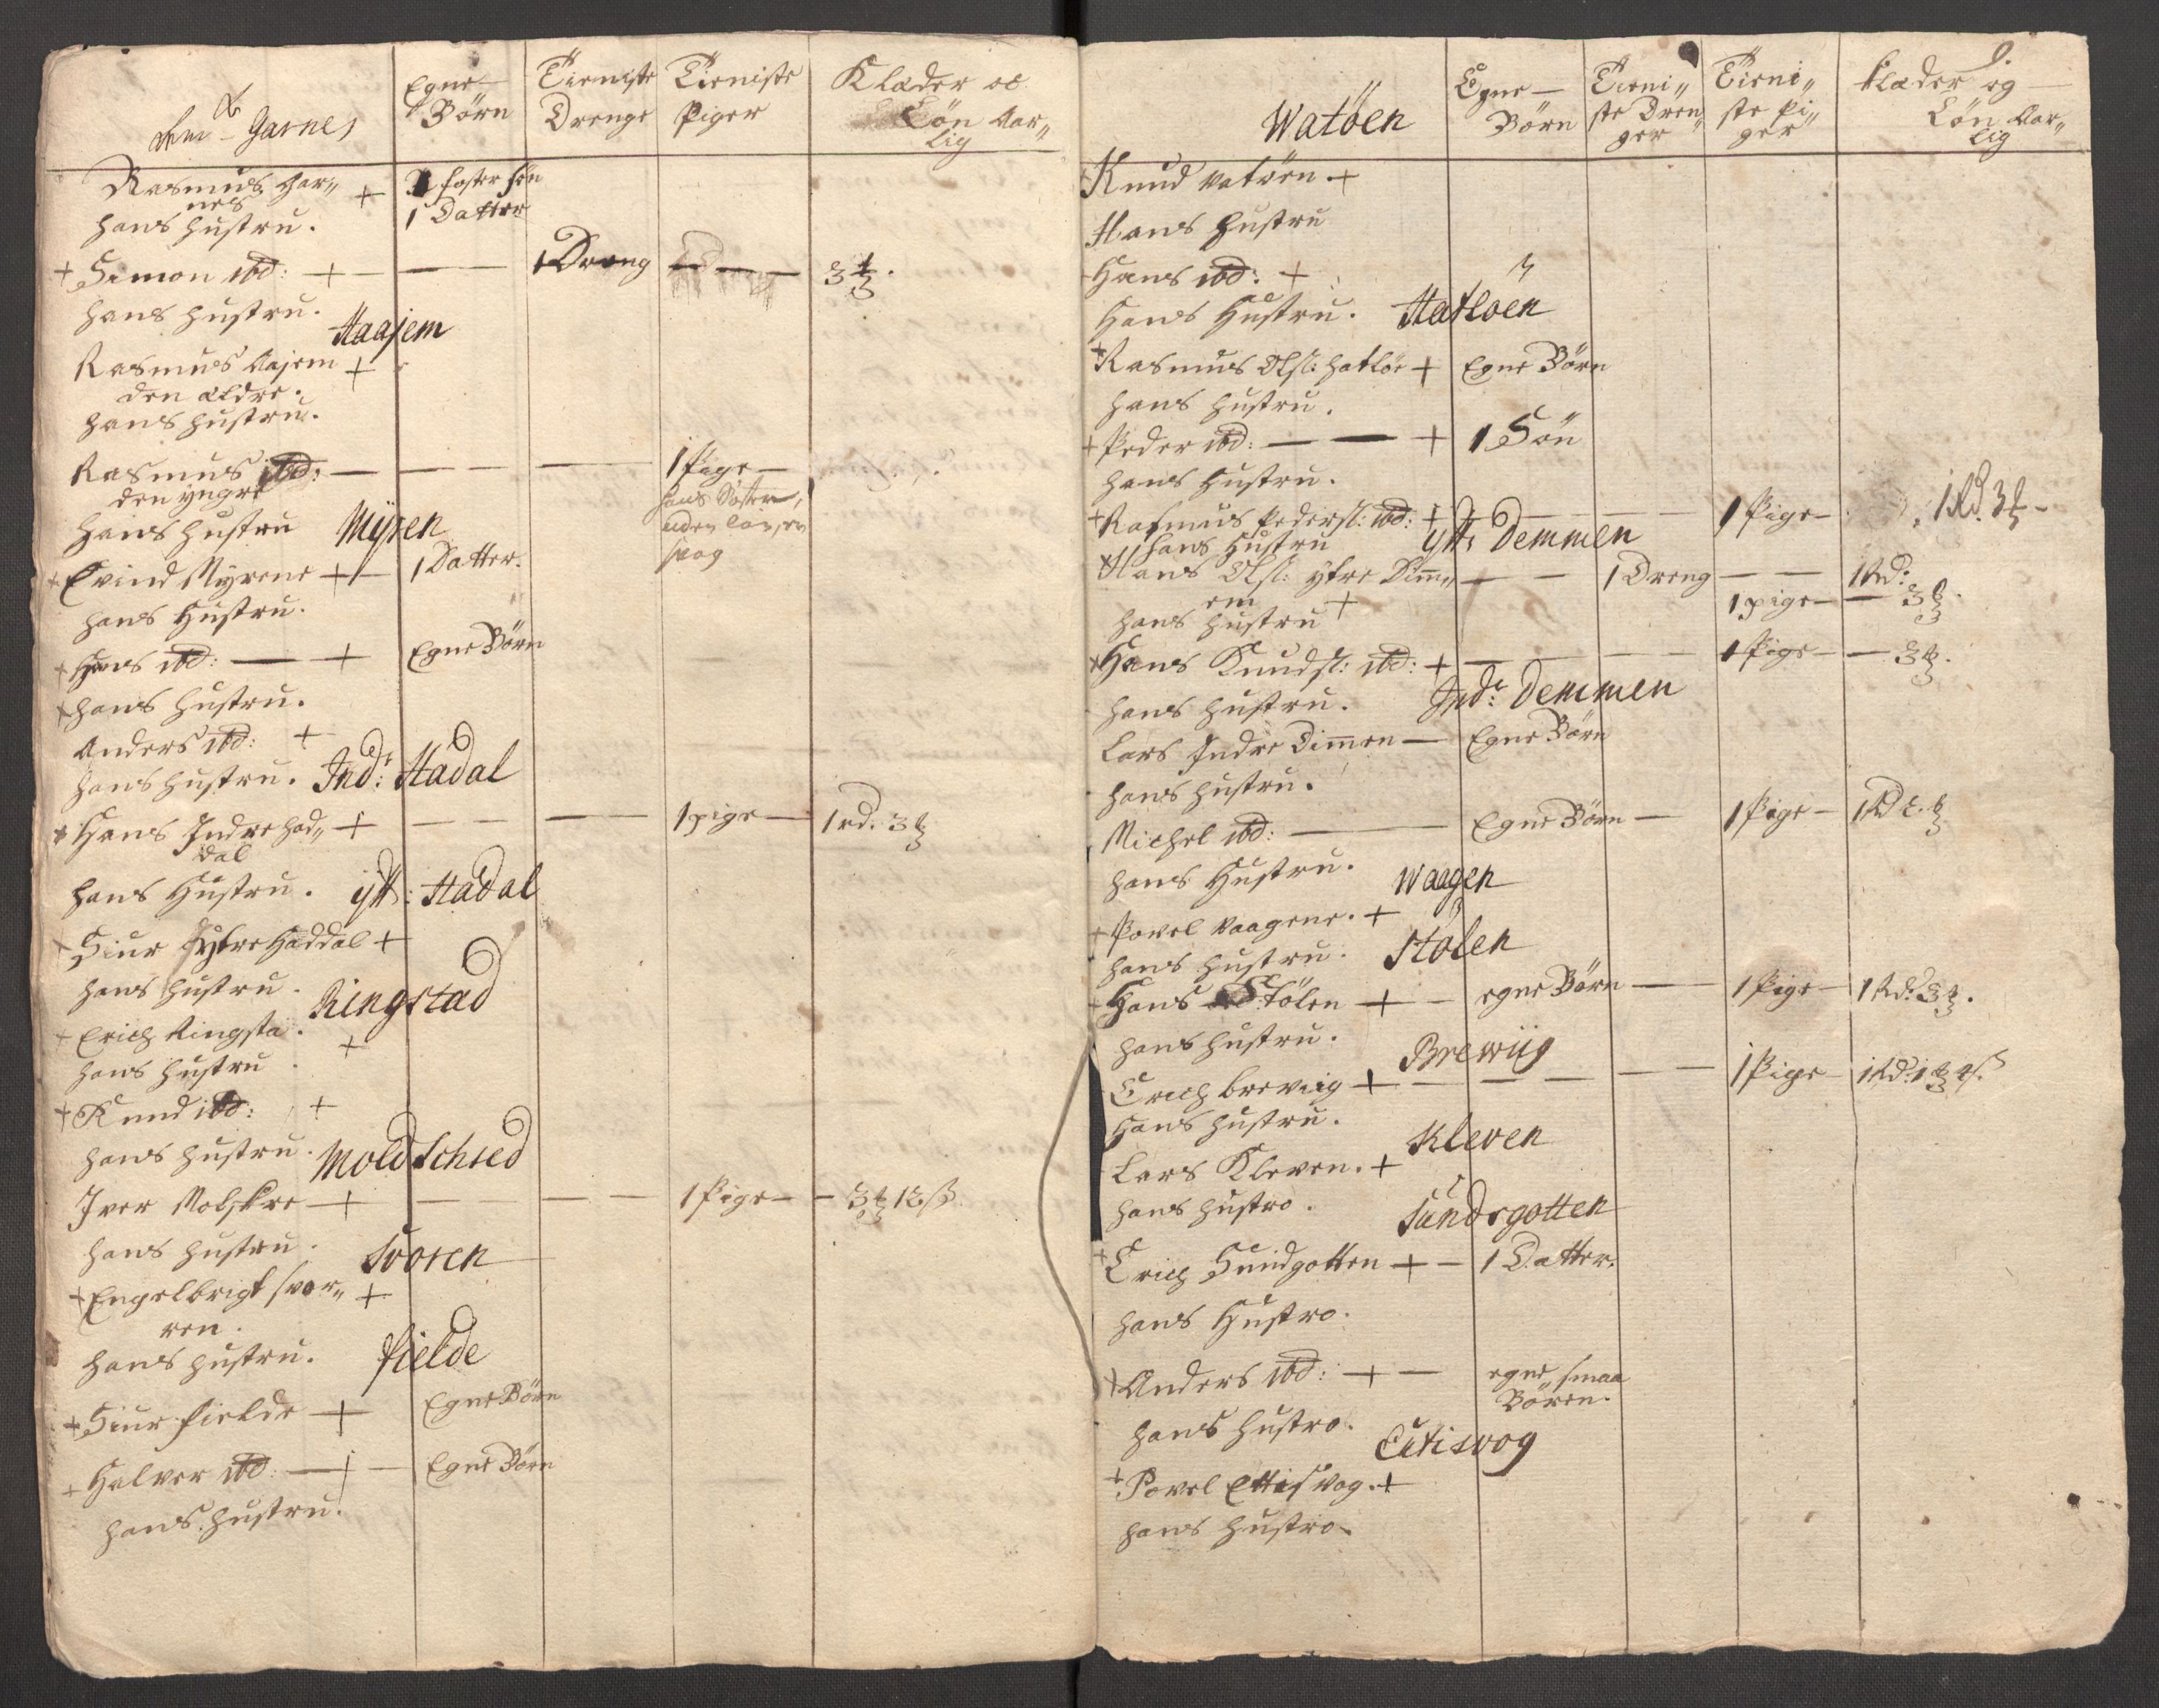 Garnes
Egne Börn
Tieniste Drenge
Tieniste Piger
Klæder oc Lön Aar„
lig
Rasmus Gar„ +
nes
1 foster sön
1 Datter
hans hustru.
+ Simon ibd: + — — 1 Dreng — — 3
hans hustru.
Haajem
Rasmus Aajem +
den ældre.
hans hustru.
Rasmus ibd: — — — 1 Pige —
den yngre
hans Söster,
uden Lön
hans hustru
Myren
+ Evind Myrene + — 1 Datter.
hans hustru.
+ Hans ibd: — + Egne Börn
hans hustru.
Anders ibd: +
hans hustru.
Indr: Hadal
+ Hans Indre had„ + — — — 1 pige — 1 rd. 3
dal
hans Hustru.
ytt: Hadal
+ Siur Yttre Haddal +
hans hustru.
Ringstad
+ Erich Ringsta.
hans hustru +
+ Knud ibd: +
hans hustru.
Moldschred
Iver Molskre — + — — — 1 Pige — — 3 12 ß
hans hustru.
Svoren
+ Engelbrigt svor„ +
ren.
hans hustru.
fielde
+ Siur fielde — + Egne Börn
+ Halvor ibd: — + — Egne Börn
hans hustru.
9.
Watöen
Egne Börn
Tieni„
ste Dren„
ger
Tieni„
ste Pi„
ger
klæder og
Lön Aar„
lig
Knud Vatöen +
Hans hustru
Hans ibd: +
Hans Hustru.
Hatlöen
+ Rasmus Olsl: hatlöe + Egne Börn
hans hustru.
+ Peder ibd: — — + 1 Sön
hans hustru.
+ Rasmus Pedersl: ibd: + — — 1 Pige — 1 Rd. 3
hans Hustru
ytt: Demmen
Hans Olsl: ytre Dimm„ — — 1 Dreng — — 1 Rd:
em +
1 pige — — 3
hans hustru
+ Hans Knudsl: ibd: + — — 1 Pige — — 3
hans hustru.
Indr: Demmen
Lars Indre Dimmen — Egne Börn
hans hustru.
Michel ibd: — Egne Börn — 1 Pige — 1 Rd
hans Hustru.
Waagen
+ Povel Vaagene. +
hans hustru.
Stölen
+ Hans Stölen + — egne Börn — 1 Pige — 1 Rd: 3
hans hustru.
Brewiig
Erich breviig + — — — — 1 Pige — 1 Rd: 1
Hans hustru.
Kleven
Lars Kleven. +
hans hustro.
Sundsgotten
+ Erich Sundgotten + — 1 Datter.
hans Hustro.
+ Anders ibd: + — egne smaa
Bören.
hans hustro.
Eitisvog
+ Povel Ettisvog. +
hans hustro.